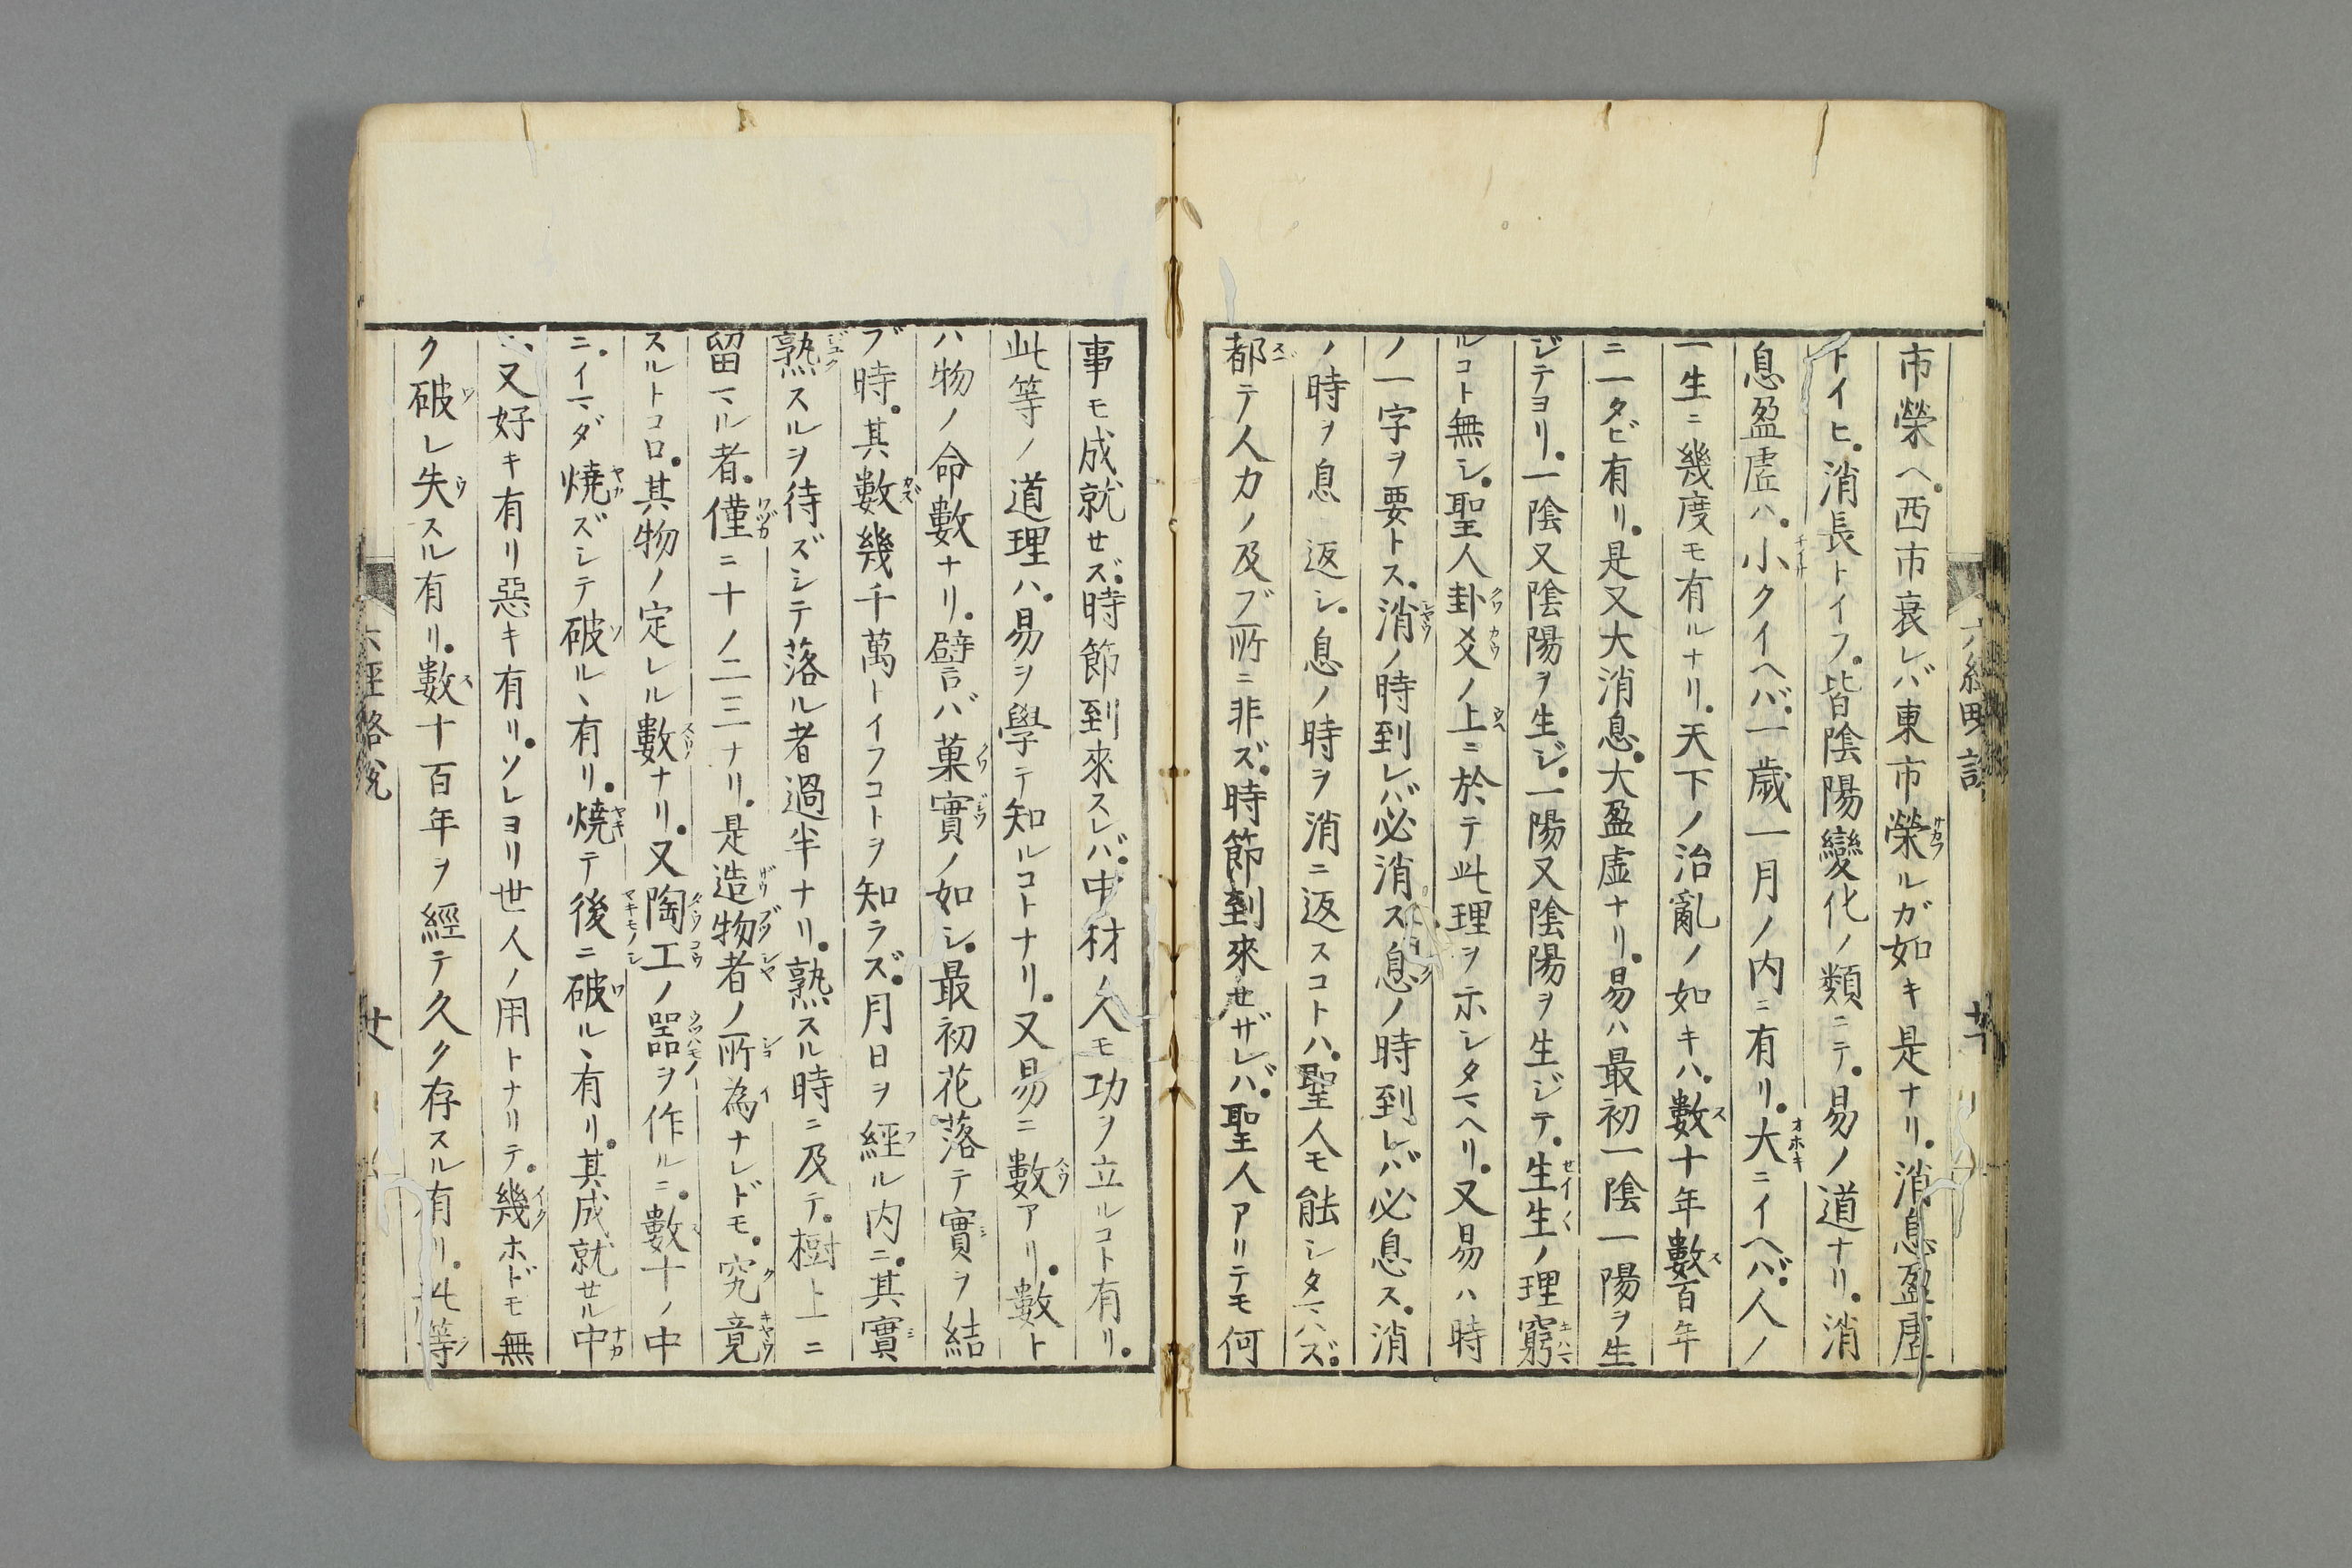 市榮ヘ。西市衰レバ東市榮ルガ如キ是ナリ。消息盈虚
トイヒ。消長トイフ。皆陰陽變化ノ類ニテ。易ノ道ナリ。消
息盈虚ハ。小クイヘバ。一歲一月ノ内ニ有リ。大ニイヘバ。人ノ
一生ニ幾度モ有ルナリ。天下ノ治亂ノ如キハ。數十年數百年
ニ一タビ有リ。是又大消息。大盈虚ナリ。易ハ最初一陰一陽ヲ生
ジテヨリ。一陰又陰陽ヲ生ジ。一陽又陰陽ヲ生ジテ。生生ノ理窮
ルコト無シ。聖人卦爻ノ上ニ於テ此理ヲ示シタマヘリ。又易ハ時
ノ一字ヲ要トス。消ノ時到レバ必消ス。息ノ時到レバ必息ス。消
ノ時ヲ息ニ返シ。息ノ時ヲ消ニ返スコトハ。聖人モ能シタマハズ。
都テ人力ノ及ブ所ニ非ズ。時節到來セザレバ。聖人アリテモ何
事モ成就セズ。時節到來スレバ。中材ノ人モ功ヲ立ルコト有リ。
此等ノ道理ハ。易ヲ學テ知ルコトナリ。又易ニ數アリ。數ト
ハ物ノ命數ナリ。譬バ菓實ノ如シ。最初花落テ實ヲ結
ブ時。其數幾千萬トイフコトヲ知ラズ。月日ヲ經ル内ニ。其實
熟スルヲ待ズシテ落ル者過半ナリ。熟スル時ニ及テ。樹上ニ
留マル者。僅ニ十ノ二三ナリ。是造物者ノ所為ナレドモ。究竟
スルトコロ。其物ノ定レル數ナリ。又陶工ノ器ヲ作ルニ。數十ノ中
ニ。イマダ焼ズシテ破ルヽ有リ。焼テ後ニ破ルヽ有リ。其成就セル中
ニ又好キ有リ惡キ有リ。ソレヨリ世人ノ用トナリテ。幾ホドモ無
ク破レ失スル有リ。數十百年ヲ經テ久ク存スル有リ。此等
六經略說
廿